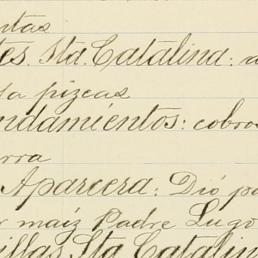 ntas
es. Sta. Catalina: a
ja pizcas
ndamientos: cobros
rra
Aparcera: Dió po
r maíz Padre Lugo
illas Sta Catalin